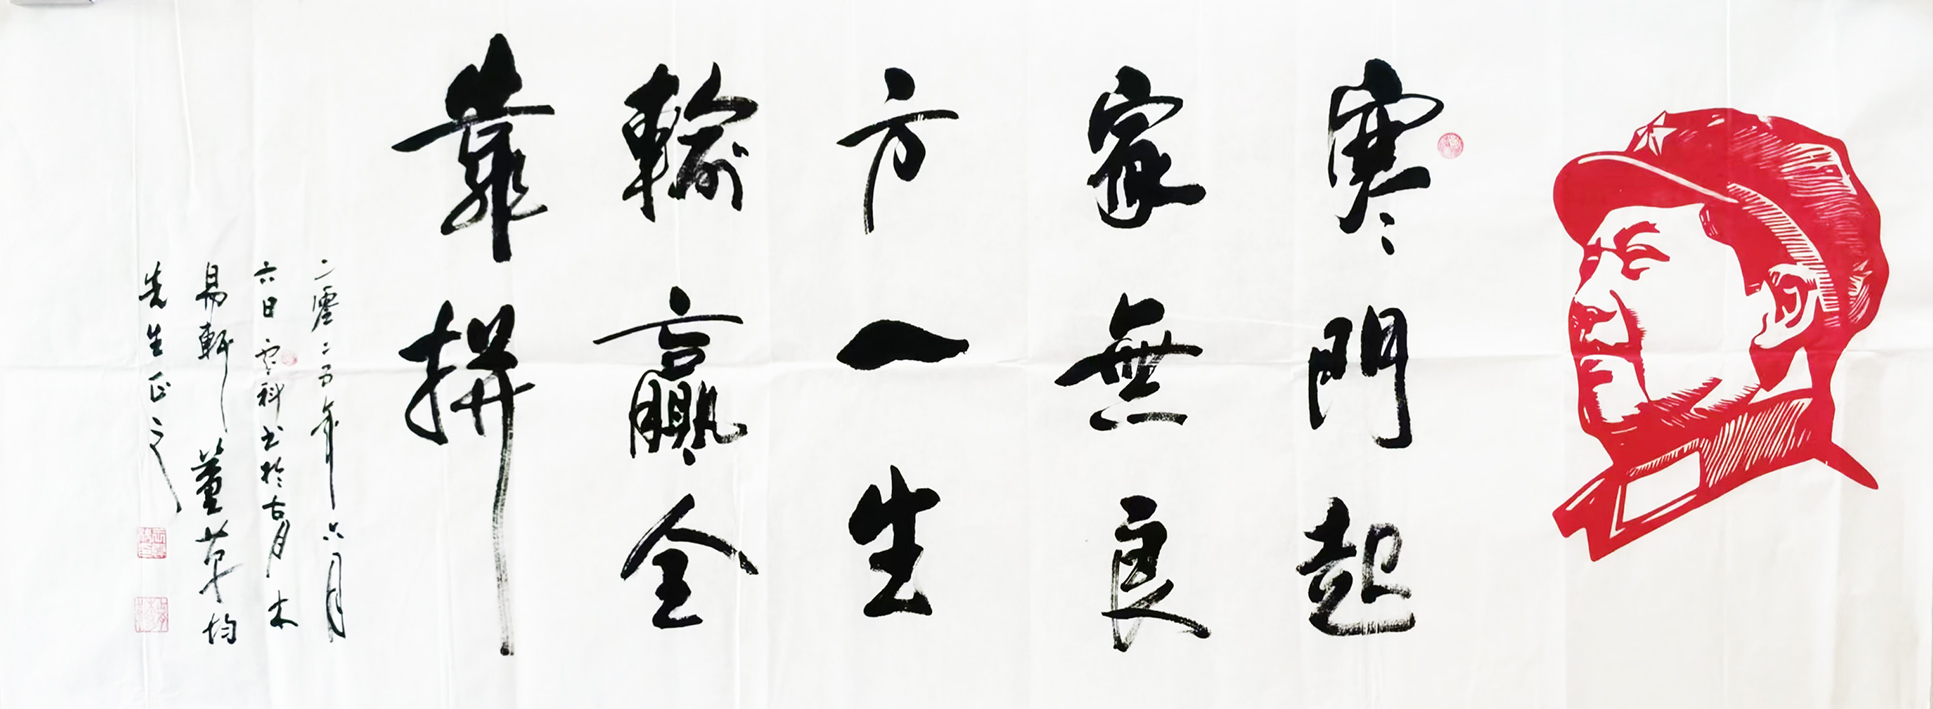 寒門起
家無良
方一生
輸贏全
靠拼
二零二五年六月
六日雲科书於古月木
易軒董草均
先生正之